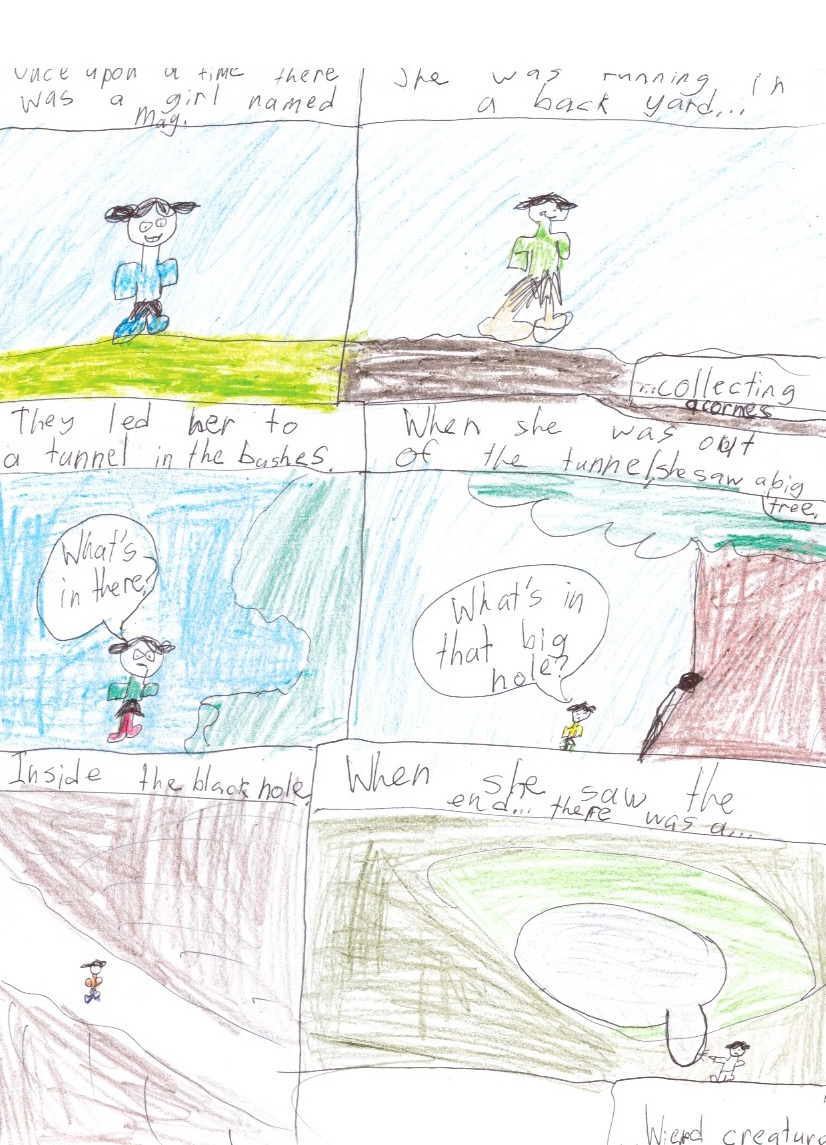 Once upon a time there
was a girl named
May.
She was running in
a back yard...
...collecting
acornes
They led her to
a tunnel in the bushes.
What's
in there?
When she was out
of the tunnel, she saw a big
tree.
What's in
that big
hole?
Inside the black hole.
When she saw the
end... there was a...
Wierd creature